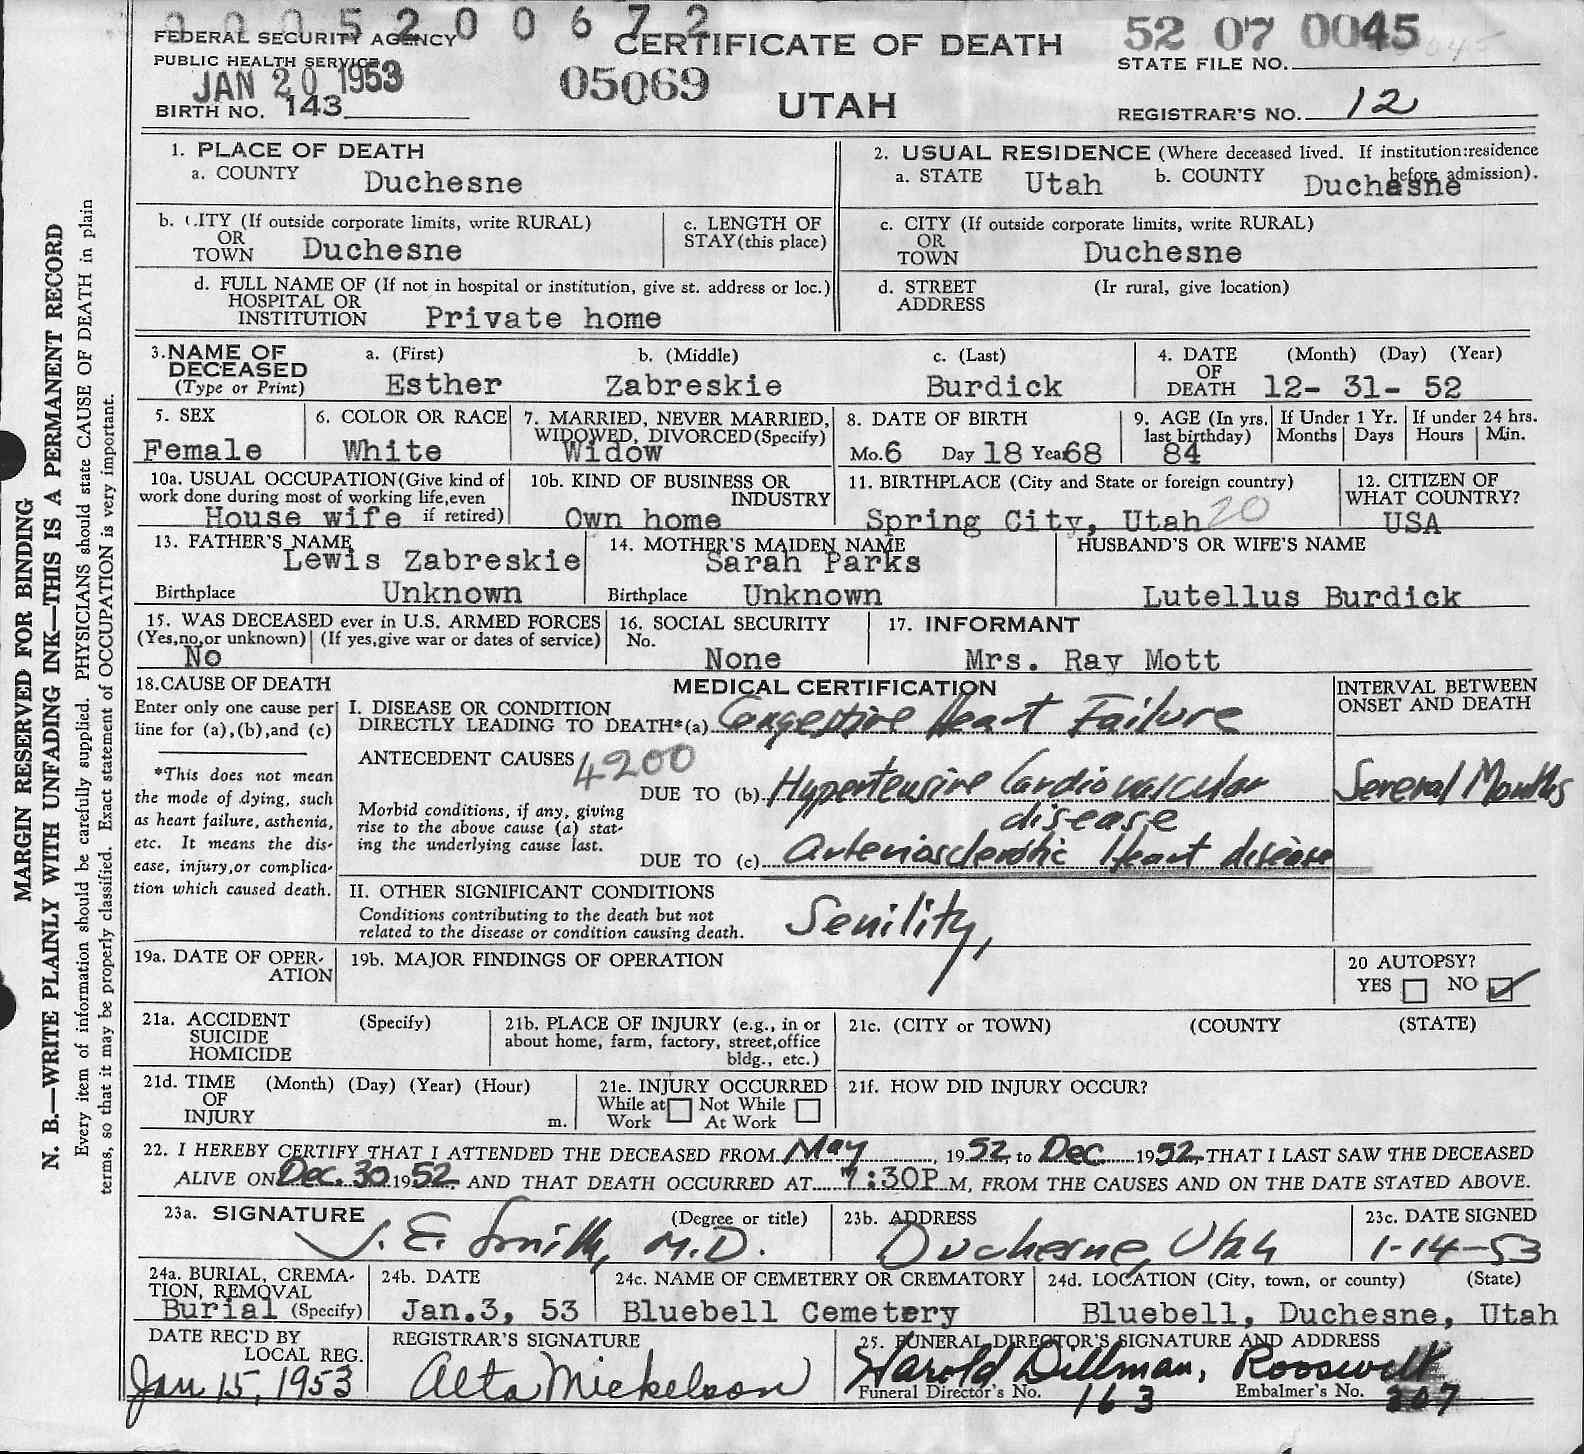 0 0 0 5 2 0 0 6 7 2
FEDERAL SECURITY AGENCY
PUBLIC HEALTH SERVICE
JAN 20 1953
BIRTH NO. 143
CERTIFICATE OF DEATH
05069
UTAH
52 07 0045
STATE FILE NO.
REGISTRAR'S NO. 12
1. PLACE OF DEATH
a. COUNTY Duchesne
2. USUAL RESIDENCE (Where deceased lived. If institution:residence before admission).
a. STATE Utah b. COUNTY Duchasne
b. CITY (If outside corporate limits, write RURAL)
OR
TOWN Duchesne
c. LENGTH OF
STAY(this place)
c. CITY (If outside corporate limits, write RURAL)
OR
TOWN Duchesne
d. FULL NAME OF (If not in hospital or institution, give st. address or loc.)
HOSPITAL OR
INSTITUTION Private home
d. STREET (If rural, give location)
ADDRESS
3. NAME OF DECEASED (Type or Print)
a. (First) b. (Middle) c. (Last)
Esther Zabreskie Burdick
4. DATE OF DEATH (Month) (Day) (Year)
12- 31- 52
5. SEX
Female
6. COLOR OR RACE
White
7. MARRIED, NEVER MARRIED,
WIDOWED, DIVORCED(Specify)
Widow
8. DATE OF BIRTH
Mo. 6 Day 18 Year 68
9. AGE (In yrs. last birthday)
84
If Under 1 Yr.
Months Days
If under 24 hrs.
Hours Min.
10a. USUAL OCCUPATION(Give kind of
work done during most of working life,even
House wife if retired)
10b. KIND OF BUSINESS OR
INDUSTRY
Own home
11. BIRTHPLACE (City and State or foreign country)
Spring City, Utah 20
12. CITIZEN OF
WHAT COUNTRY?
USA
13. FATHER'S NAME
Lewis Zabreskie
Birthplace Unknown
14. MOTHER'S MAIDEN NAME
Sarah Parks
Birthplace Unknown
HUSBAND'S OR WIFE'S NAME
Lutellus Burdick
15. WAS DECEASED ever in U.S. ARMED FORCES
(Yes,no,or unknown) (If yes,give war or dates of service)
No
16. SOCIAL SECURITY
No.
None
17. INFORMANT
Mrs. Ray Mott
18. CAUSE OF DEATH
Enter only one cause per
line for (a),(b),and (c)
*This does not mean
the mode of dying, such
as heart failure, asthenia,
etc. It means the dis-
ease, injury,or complica-
tion which caused death.
MEDICAL CERTIFICATION
I. DISEASE OR CONDITION
DIRECTLY LEADING TO DEATH*(a) Congestive Heart Failure
ANTECEDENT CAUSES 4200
DUE TO (b) Hypertensive Cardiovascular
disease
Morbid conditions, if any, giving
rise to the above cause (a) stat-
ing the underlying cause last.
DUE TO (c) Arteriosclerotic Heart disease
INTERVAL BETWEEN
ONSET AND DEATH
Several Months
II. OTHER SIGNIFICANT CONDITIONS
Conditions contributing to the death but not
related to the disease or condition causing death.
Senility,
19a. DATE OF OPER-
ATION
19b. MAJOR FINDINGS OF OPERATION
20 AUTOPSY?
YES NO
21a. ACCIDENT (Specify)
SUICIDE
HOMICIDE
21b. PLACE OF INJURY (e.g., in or
about home, farm, factory, street,office
bldg., etc.)
21c. (CITY or TOWN) (COUNTY (STATE)
21d. TIME (Month) (Day) (Year) (Hour)
OF
INJURY m.
21e. INJURY OCCURRED
While at Not While
Work At Work
21f. HOW DID INJURY OCCUR?
22. I HEREBY CERTIFY THAT I ATTENDED THE DECEASED FROM May, 1952, to Dec. 1952, THAT I LAST SAW THE DECEASED
ALIVE ON Dec. 30 1952, AND THAT DEATH OCCURRED AT 7:30P M, FROM THE CAUSES AND ON THE DATE STATED ABOVE.
23a. SIGNATURE (Degree or title)
J. E. Smith, M.D.
23b. ADDRESS
Duchesne, Utah
23c. DATE SIGNED
1-14-53
24a. BURIAL, CREMA-
TION, REMOVAL
Burial (Specify)
24b. DATE
Jan.3, 53
24c. NAME OF CEMETERY OR CREMATORY
Bluebell Cemetery
24d. LOCATION (City, town, or county) (State)
Bluebell, Duchesne, Utah
DATE REC'D BY
LOCAL REG.
Jan 15, 1953
REGISTRAR'S SIGNATURE
Alta Mickelson
25. FUNERAL DIRECTOR'S SIGNATURE AND ADDRESS
Harold Dillman, Roosevelt
Funeral Director's No. 163 Embalmer's No. 207
MARGIN RESERVED FOR BINDING
N. B.—WRITE PLAINLY WITH UNFADING INK—THIS IS A PERMANENT RECORD
Every item of information should be carefully supplied. PHYSICIANS should state CAUSE OF DEATH in plain
terms, so that it may be properly classified. Exact statement of OCCUPATION is very important.